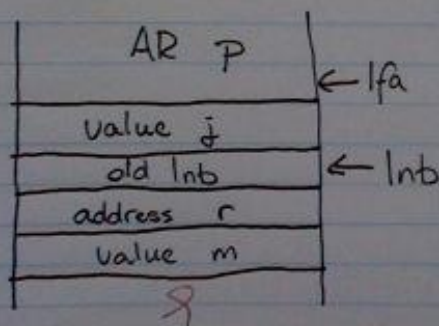 AR P
← lfa
value j
old lnb ← lnb
address r
value m